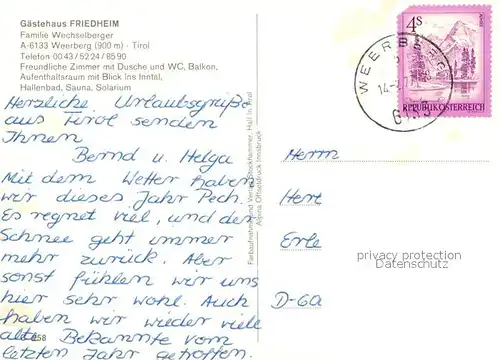 Gästehaus FRIEDHEIM
Familie Wechselberger
A-6133 Weerberg (900 m) · Tirol
Telefon 0043/5224/8590
Freundliche Zimmer mit Dusche und WC, Balkon,
Aufenthaltsraum mit Blick ins Inntal,
Hallenbad, Sauna, Solarium
Herzliche Urlaubsgrüße
aus Tirol senden
Ihnen
Bernd u. Helga
Mit dem Wetter haben
wir dieses Jahr Pech.
Es regnet viel, und der
Schnee geht immer
mehr zurück. Aber
sonst fühlen wir uns
hier sehr wohl. Auch
haben wir wieder viele
alte Bekannte vom
letzten Jahr getroffen.
58
Alpina Offsetdruck Innsbruck
4 S
REPUBLIK ÖSTERREICH
WEERBERG
6133
Herrn
Herr
Erle
D-60
privacy protection
Datenschutz